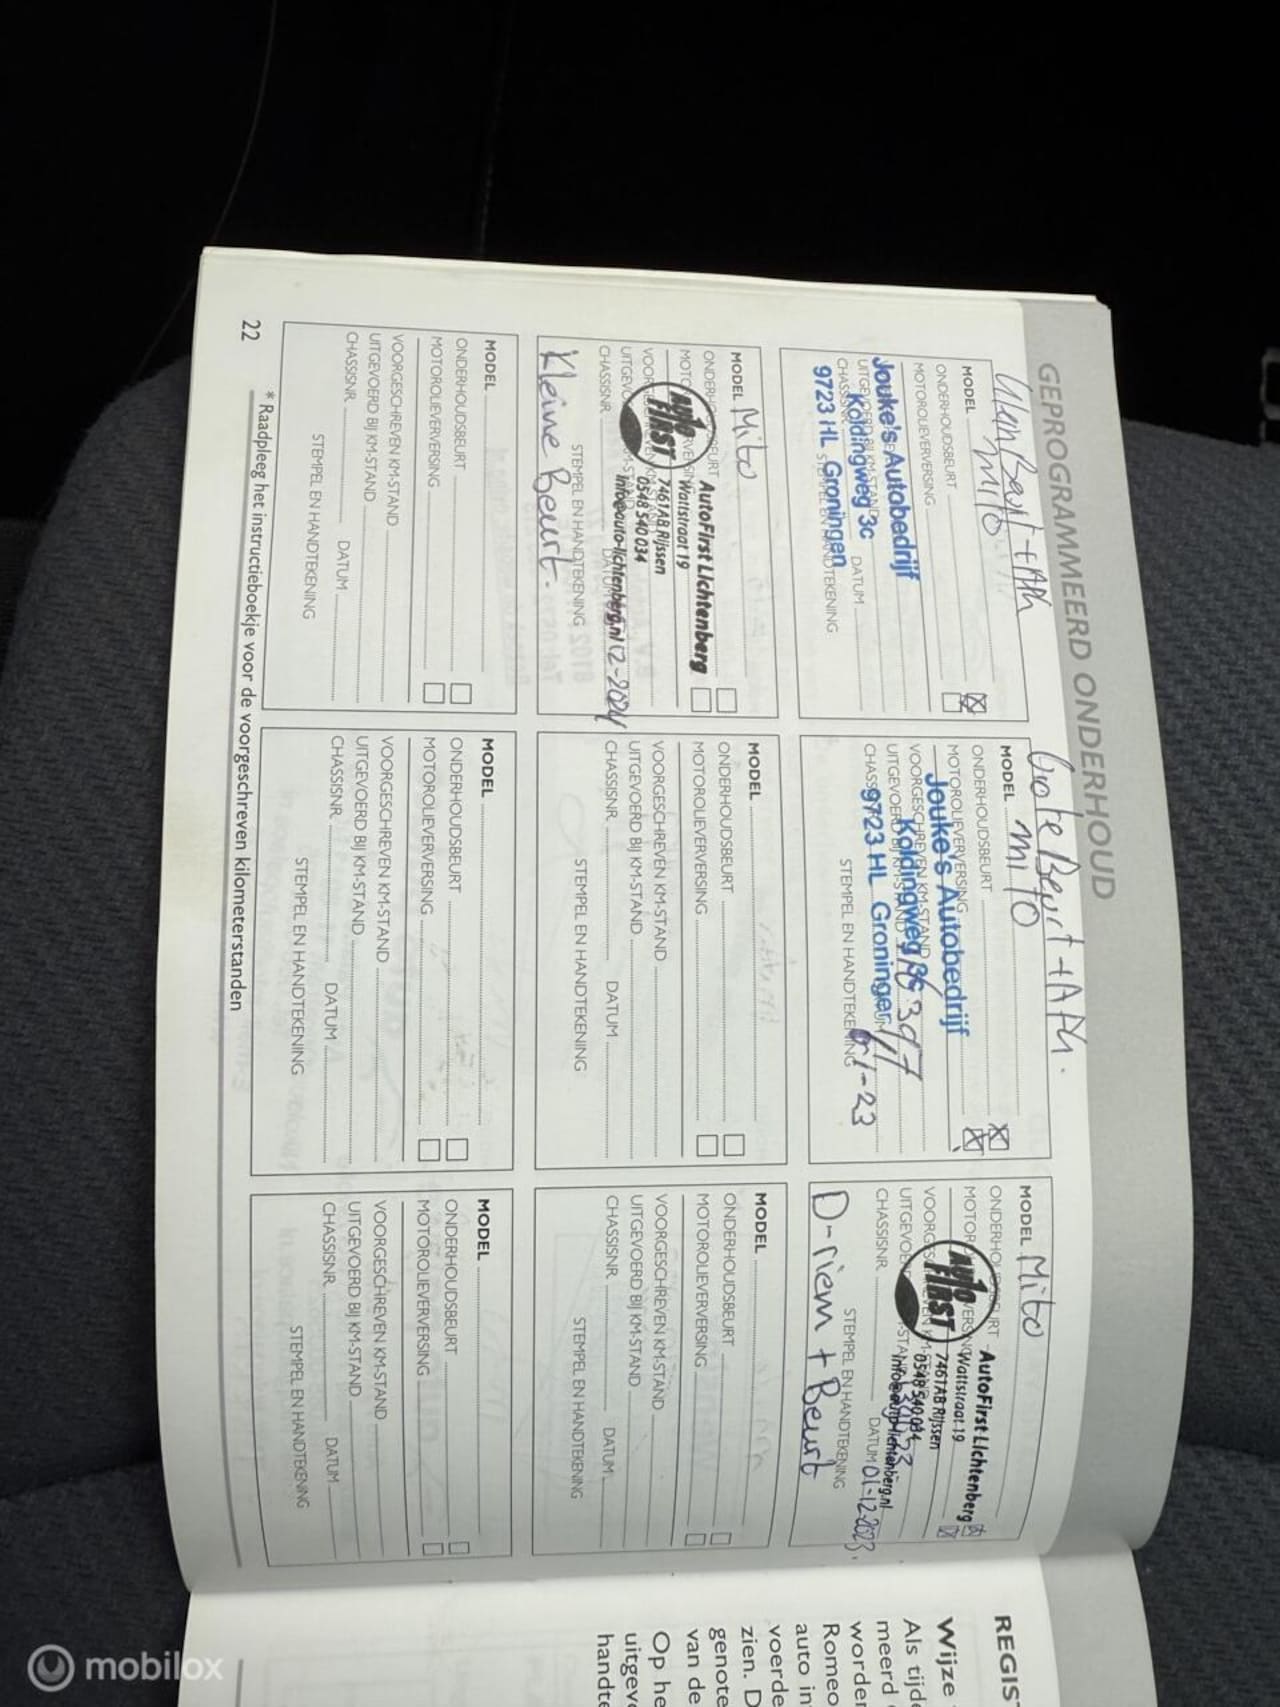 GEPROGRAMMEERD ONDERHOUD
Klein Beurt + APk
MODEL Mito
ONDERHOUDSBEURT
MOTOROLIEVERVERSING
UITGEVOERD BIJ KM-STAND
DATUM
STEMPEL EN HANDTEKENING
Jouke's Autobedrijf
Koldingweg 3c
9723 HL Groningen
Grote Beurt + APk.
MODEL MITO
ONDERHOUDSBEURT
MOTOROLIEVERVERSING
VOORGESCHREVEN KM-STAND
UITGEVOERD BIJ KM-STAND
STEMPEL EN HANDTEKENING
Jouke's Autobedrijf
Koldingweg 3c
9723 HL Groningen
MODEL Mito
ONDERHOUDSBEURT
CHASSISNR.
DATUM 01-12-2023.
STEMPEL EN HANDTEKENING
AUTO FIRST
AutoFirst Lichtenberg
Wattstraat 19
7461AB Rijssen
0548 540 034
info@auto-lichtenberg.nl
D-riem + Beurt
MODEL Mito
CHASSISNR.
12-2024
STEMPEL EN HANDTEKENING
AUTO FIRST
AutoFirst Lichtenberg
Wattstraat 19
7461AB Rijssen
0548 540 034
info@auto-lichtenberg.nl
Kleine Beurt.
MODEL
ONDERHOUDSBEURT
MOTOROLIEVERVERSING
VOORGESCHREVEN KM-STAND
UITGEVOERD BIJ KM-STAND
CHASSISNR. DATUM
STEMPEL EN HANDTEKENING
MODEL
ONDERHOUDSBEURT
MOTOROLIEVERVERSING
VOORGESCHREVEN KM-STAND
UITGEVOERD BIJ KM-STAND
CHASSISNR. DATUM
STEMPEL EN HANDTEKENING
MODEL
ONDERHOUDSBEURT
MOTOROLIEVERVERSING
VOORGESCHREVEN KM-STAND
UITGEVOERD BIJ KM-STAND
CHASSISNR. DATUM
STEMPEL EN HANDTEKENING
MODEL
ONDERHOUDSBEURT
MOTOROLIEVERVERSING
VOORGESCHREVEN KM-STAND
UITGEVOERD BIJ KM-STAND
CHASSISNR. DATUM
STEMPEL EN HANDTEKENING
MODEL
ONDERHOUDSBEURT
MOTOROLIEVERVERSING
VOORGESCHREVEN KM-STAND
UITGEVOERD BIJ KM-STAND
CHASSISNR. DATUM
STEMPEL EN HANDTEKENING
* Raadpleeg het instructieboekje voor de voorgeschreven kilometerstanden
22
REGIS
Wijze
Als tijde
meerd
worder
Romeo
auto in
voerde
zien. D
genote
van de
Op he
uitgev
handte
mobilox